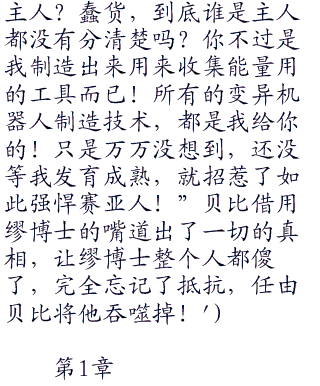 主人？蠢货，到底谁是主人
都没有分清楚吗？你不过是
我制造出来用来收集能量用
的工具而已！所有的变异机
器人制造技术，都是我给你
的！只是万万没想到，还没
等我发育成熟，就招惹了如
此强悍赛亚人！”贝比借用
缪博士的嘴道出了一切的真
相，让缪博士整个人都傻
了，完全忘记了抵抗，任由
贝比将他吞噬掉！′)
第1章